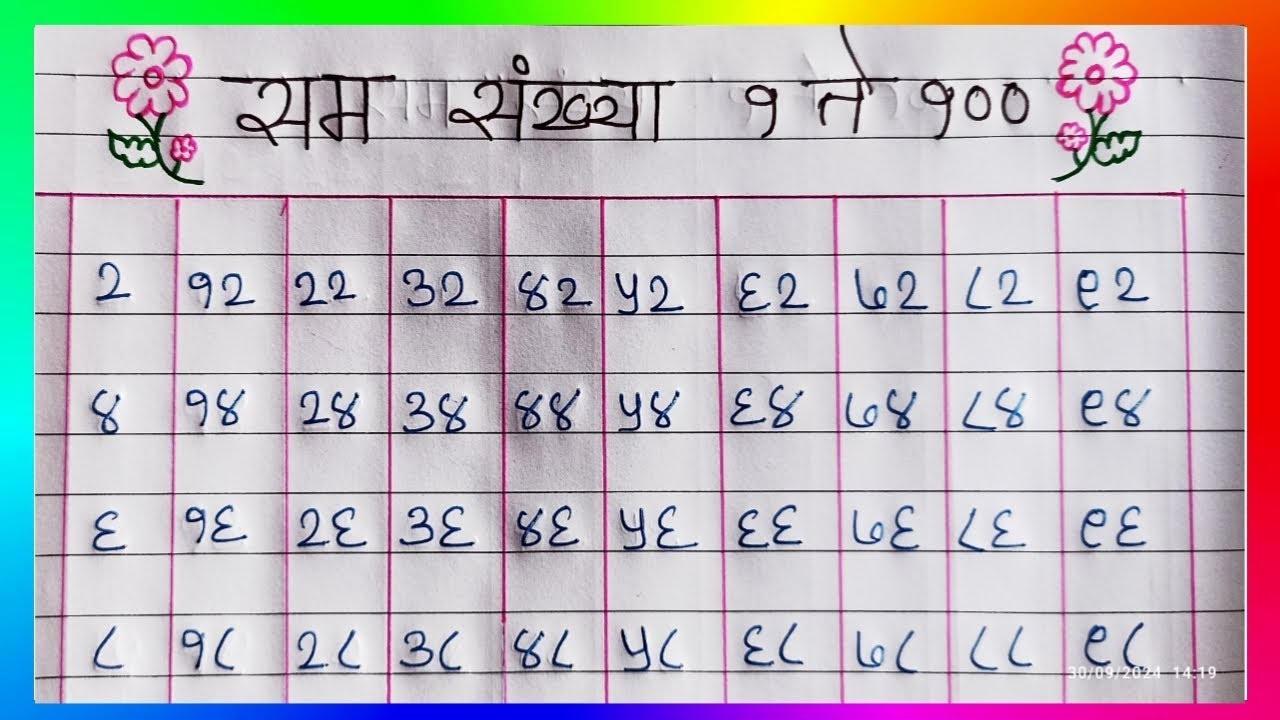 सम संख्या १ ते १००
२ १२ २२ ३२ ४२ ५२ ६२ ७२ ८२ ९२
४ १४ २४ ३४ ४४ ५४ ६४ ७४ ८४ ९४
६ १६ २६ ३६ ४६ ५६ ६६ ७६ ८६ ९६
८ १८ २८ ३८ ४८ ५८ ६८ ७८ ८८ ९८
30/09/2024 14:19